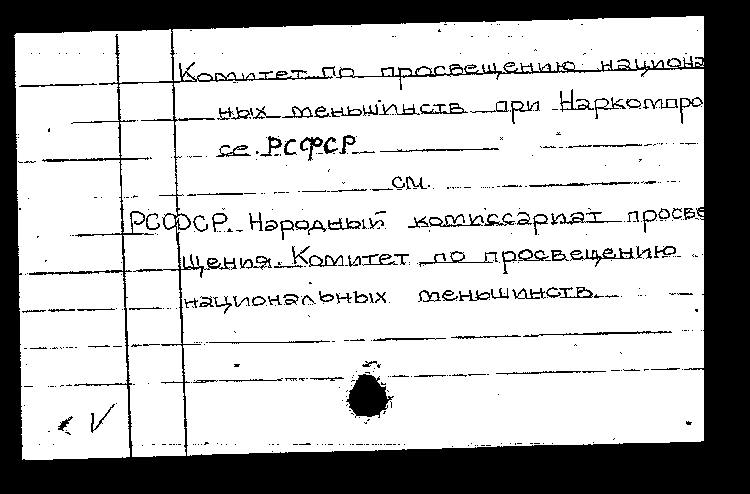 Комитет по просвещению национа
ных меньшинств при Наркомпро
се. РСФСР
см.
РСФСР. Народный комиссариат просве
щения. Комитет по просвещению
национальных меньшинств.